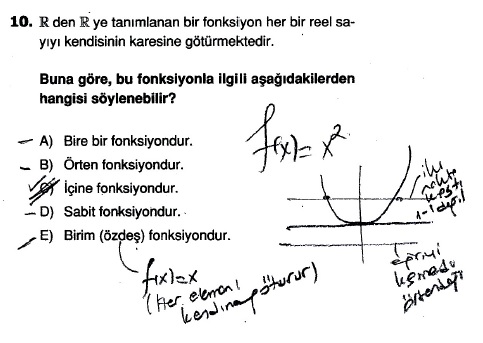 10. ℝ den ℝ ye tanımlanan bir fonksiyon her bir reel sa-
yıyı kendisinin karesine götürmektedir.
Buna göre, bu fonksiyonla ilgili aşağıdakilerden
hangisi söylenebilir?
A) Bire bir fonksiyondur.
B) Örten fonksiyondur.
C) İçine fonksiyondur.
D) Sabit fonksiyondur.
E) Birim (özdeş) fonksiyondur.
f(x) = x²
iki
nokta
kesti
1-1 değil
eğriyi
kesmedi
örten değil
f(x) = x
(Her elemanı
kendine götürür)